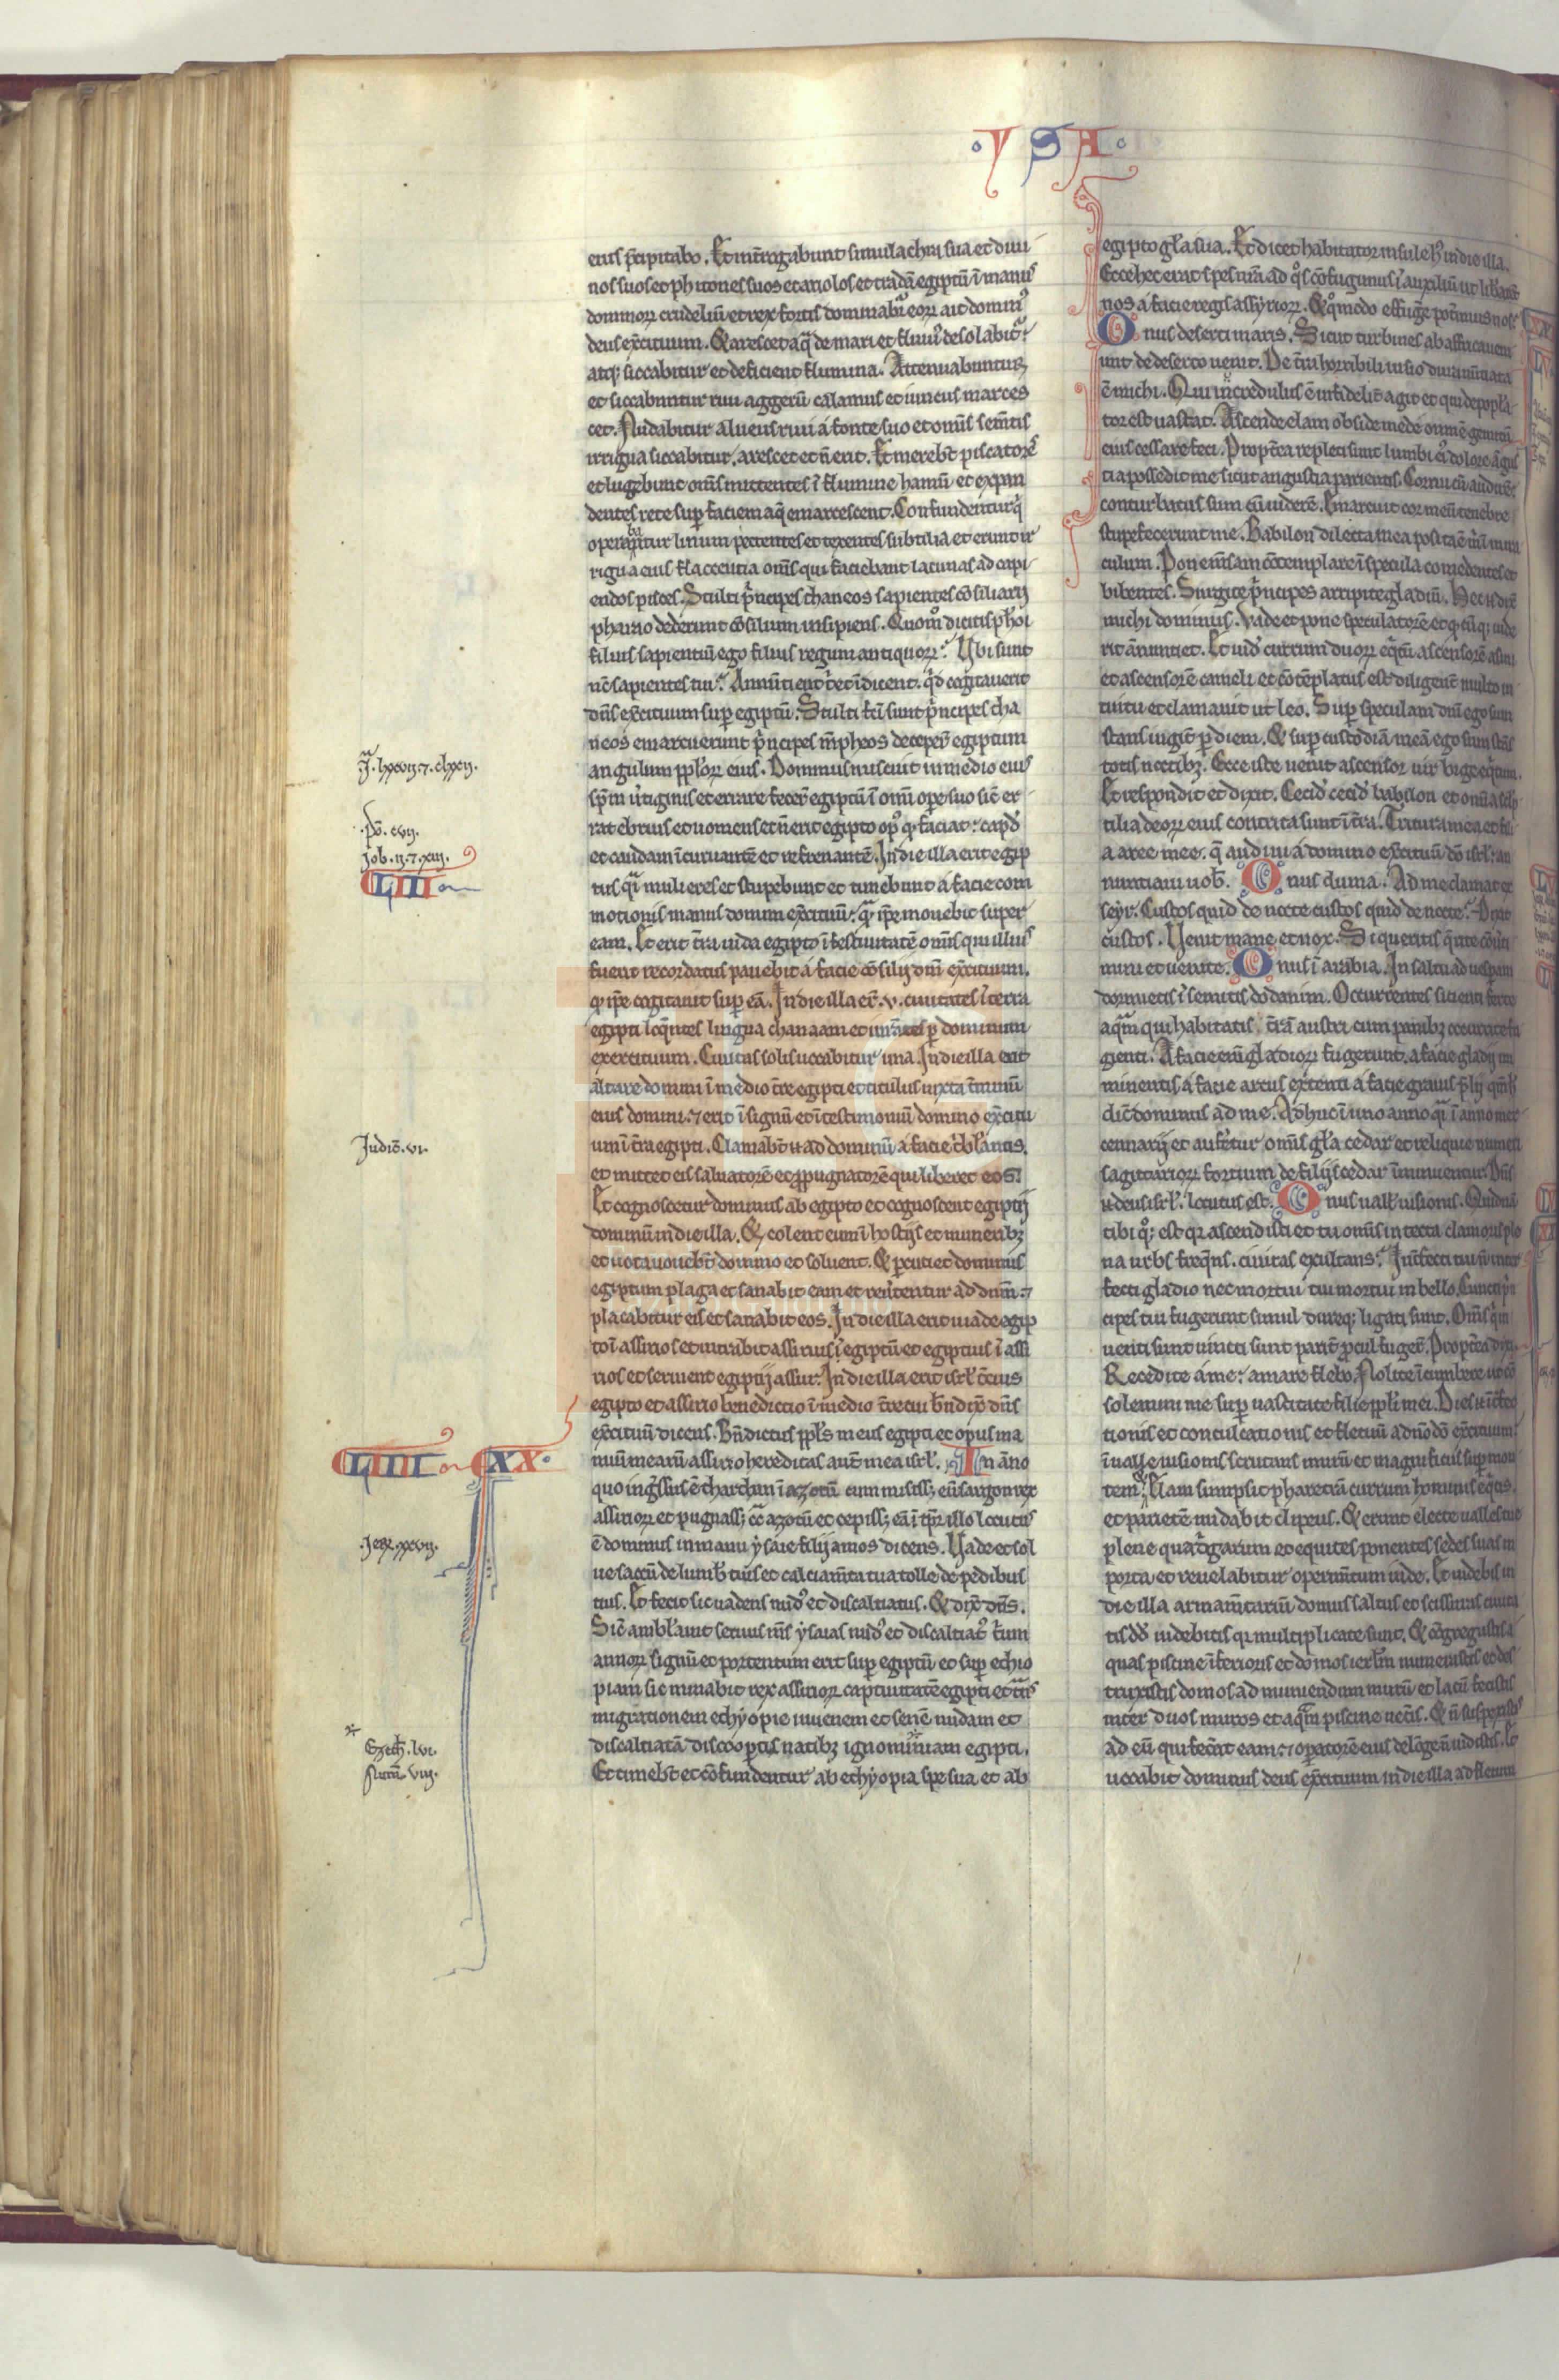 · Y S A ·
eius p̄cipitabo. Et int̄rogabunt simulachra sua et diui
nos suos et phitones suos et ariolos et tradā egiptū ī manus
dominoꝝ crudeliū et rex fortis dominabit᷑ eoꝝ ait dominꝰ
deus exc̄ituum. Et arescet aqᷓ de mari et fluuiꝰ desolabit᷑
atq; siccabitur et deficient flumina. Attenuabuntur
et siccabuntur riui aggerū calamus et iuncus marces
cet. Nudabitur alueus riui a fonte suo et om̄is sem̄tis
irrigua siccabitur. arescet et ñ erit. Et mereb̄t piscatores
et lugebunt om̄s mittentes ī flumine hamū et expan
dentes rete sup̱ faciem aq̄ emarcescent. Confundentur q̇
operabātur linum pectentes et texentes subtilia et erunt ir
rigua eius flaccentia om̄s qui faciebant lacunas ad capi
endos pisces. Stulti pͥncipes thaneos sapientes cōsiliarij
pharao dederunt cōsilium insipiens. Quom̊ dicitis phaͦi
filius sapientiū ego filius regum antiquoꝝ. Ubi sunt
nc̄ sapientes tui. Annūtient t̍ et īdicent. qͥd cogitauerit
dn̄s exc̄ituum sup̱ egiptū. Stulti fc̄i sunt pͥncipes tha
neos emarcuerunt pͥncipes mēpheos decep̱ūt egiptum
angulum ppl̓oꝝ eius. Dominus miscuit in medio eius
sp̄m ūtiginis et errare fecer̄ egiptū ī om̄i ope̱ suo sic̄ er
rat ebrius et uomens et ñ erit egipto opꝰ qͩ faciat. caput
et caudam īcuruantē et refrenantē. In die illa erit egip
tus qͣi mulieres et stupebunt et timebunt a facie com
motionis manus domini exc̄ituū. qᷓ ip̄e mouebit super
eam. Et erit t̄ra iuda egipto ī festiuitatē om̄is qui illius
fuerit recordatus pauebit a facie cōsilij dn̄i exc̄ituum.
qͩ ip̄e cogitauit sup̱ eā. In die illa er̄t .v. ciuitates ī terra
egipti loq̄ntes lingua chanaam et iurātes ꝑ dominum
exercituum. Ciuitas solis uocabitur una. In die illa erit
altare domini ī medio t̄re egipti et titulus iuxta t̄minū
eius domini. ⁊ erit ī signū et ī testimoniū domino exc̄itu
um ī t̄ra egipti. Clamab̄t .n. ad dominū a facie tͥbl̓antis.
et mittet eis saluatorē et ꝓpugnatorē qui liberet eos.
Et cognoscetur dominus ab egipto et cognoscent egiptij
dominū in die illa. Et colent eum ī hostijs et munerib;
et uota uoueb̄t domino et soluent. Et ꝑcutiet dominus
egiptum plaga et sanabit eam et reūtentur ad dn̄m. ⁊
placabitur eis et sanabit eos. In die illa erit uia de egip
to ī assirios et intrabit assirius ī egiptū et egiptius ī assi
rios et seruient egiptij assur. In die illa erit isrl̓ t̄cius
egipto et assirio benedictio ī medio t̄re cui bn̄dix̄ dn̄s
exc̄ituū dicens. Bn̄dictus ppl̓s meus egipti et opus ma
nuū mearū assirio hereditas aut̄ mea isrl̓. In āno
quo ing̍ssus ē tharthan ī azotū cum misiss; eū sargon rex
assirioꝝ et pugnass; cōᷓ azotū et cepiss; eā ī tp̱r illo locutus
ē dominus in manu ysaie filij amos dicens. Uade et sol
ue saccū de lumb̄ tuis et calciam̄ta tua tolle de pedibus
tuis. Et fecit sic uadens nudꝰ et discaltiatus. Et dix̄ dn̄s.
Sic̄ ambl̓auit seruus ms̄ ysaias nudꝰ et discaltiatꝰ t̍um
annoꝝ signū et portentum erit sup̱ egiptū et sup̱ ethio
piam sic minabit rex assirioꝝ captiuitatē egipti et tͣns
migrationem ethyopie iuuenem et senē nudam et
discaltiatā discoop̱tis natib; ignominiam egipti.
Et timeb̄t et cōfundentur ab ethyopia spe sua et ab
ā. lxxvij. ⁊ . clxxij.
.pō. cvij.
Job. ij. ⁊ . xiij.
LIII
Judic̄. vi.
LIIII XX.
.Jere. xxvij.
Ezech̄. lvi.
Num̄. viij.
egipto gl̓a sua. Et dicet habitator insule h̓ in die illa.
Ecce hec erat spes n̄ra ad qͦs cōfugimus ī auxiliū ut libarēt
nos a facie regis assyrioꝝ. Et qͦmodo effug̍e pot̍imus nos.
Onus deserti maris. Sicut turbines ab affrico ueni
unt de deserto uenit. De t̄ra horribili uisio dura nūtiata
ē michi. Qui incredulus ē infidelit̄ agit et qui depopl̓a
tor est uastat. Ascende elam obside mede om̄ē gemitū
eius cessare feci. Propt̄ea repleti sunt lumbi ei dolore āgus
tia possedit me sicut angustia parientis. Corrui cū audirē.
conturbatus sum cū uiderē. Emarcuit cor meū tenebre
stupefecerunt me. Babilon dilecta mea posita ē m̍ in mira
culum. Pone m̄sam cōtemplare ī specula comedentes et
bibentes. Surgite pͥncipes arripite gladiū. Hec .n. dix̄
michi dominus. Uade et pone speculatorē et qͩcūq; uide
rit ānuntiet. Et uidꝰ currum duoꝝ eqͥtū ascensorē asini
et ascensorē cameli et cōtēplatus est diligent̄ multo in
tuitu et clamauit ut leo. Sup̱ speculam dn̄i ego sum
stans iugit̄ ꝑ diem. Et sup̱ custodiā meā ego sum stās
totis noctib;. Ecce iste uenit ascensor uir bige eqͥtum.
Et respondit et dixit. Cecid̓ cecid̓ babilon et om̄ia scul
tilia deoꝝ eius contrita sunt ī t̄ra. Tritura mea et fili
a aree mee. q̄ audiui a domino exc̄ituū dō isrl̓. an
nuntiaui uob̄. Onus duma. Ad me clamat ex
seyr. Custos quid de nocte custos quid de nocte. Dixit
custos. Uenit mane et nox. Si queritis q̄rite cōūti
mini et uenite. Onus ī arabia. In saltu ad uesp̱am
dormietis ī semitis dodanim. Occurrentes sitienti ferte
aqᷓm qui habitatis t̄rā austri cum panib; occurrite fu
gienti. A facie em̄ gladioꝝ fugerunt. a facie gladij im
minentis a facie arcus extenti a facie grauis p̄lij qm̄ h̓
dic̄ dominus ad me. Adhuc ī uno anno qͣi ī anno mer
cennarij et aufe̱tur om̄is gl̓a cedar et reliquie numeri
sagittarioꝝ fortium de filijs cedar īminuentur. Dn̄s
.n. deus isrl̓. locutus est. Onus uall̓ uisionis. Quidnā
tibi qͦ; est qͥr ascendisti et tu om̄is in tecta clamoris ple
na urbs freq̄ns. ciuitas exultans. Int̄fecti tui ñ inter
fecti gladio nec mortui tui mortui in bello. Cuncti pͥn
cipes tui fugerunt simul dureq; ligati sunt. Om̄s q̇ in
uenti sunt uincti sunt parit̄ ꝓcul fuger̄t. Propt̄ea dixi.
Recedite a me. amare flebo. Nolite īcumbere ut cō
solemini me sup̱ uastitate filie ppl̓i mei. Dies .n. int̄fec
tionis et conculcationis et fletuū a dn̄o dō exc̄ituum
ī ualle uisionis scrutans murū et magnificus sup̱ mon
tem. Elam sumpsit pharetrā currum hominis eqͥtis.
et parietē nudabit clipeus. Et erunt electe ualles tue
plene quadͥgarum et equites ponentes sedes suas in
porta et reuelabitur operim̄tum iude. Et uidebis in
die illa armam̄tariū domus saltus et scissuras ciuita
tis dd̓ uidebitis qͥr multiplicate sunt. Et cōgregastis a
quas piscine īferioris et domos ierl̓m numerastis et des
truxistis domos ad muniendum murū et lacū fecistis
inter duos muros et aqᷓm piscine uet̄is. Et ñ suspexistis
ad eū qui fec̄at eam. ⁊ op̱atorē eius de lōge ñ uidistis. Et
uocabit dominus deus exc̄ituum in die illa ad fletum